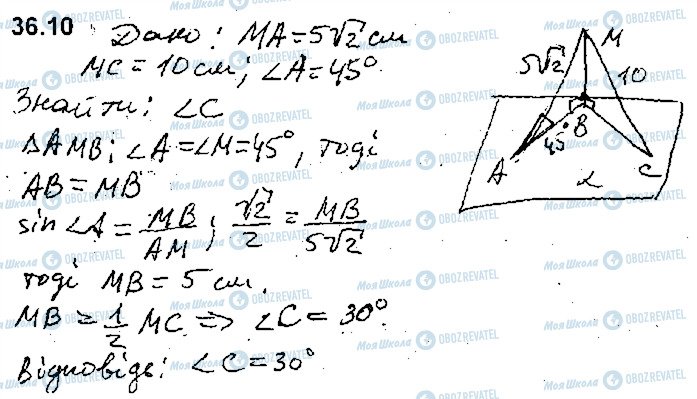 36.10 Дано: MA=5√2 см
MC = 10 см; ∠A=45°.
Знайти: ∠C
△AMB; ∠A=∠M=45°, тоді
AB=MB
sin∠A = MB/AM; √2/2 = MB/5√2
тоді MB = 5 см.
MB = 1/2 MC => ∠C = 30°
Відповідь: ∠C=30°
M
5√2
10
B
45
A
C
α
Моя Школа OBOZREVATEL